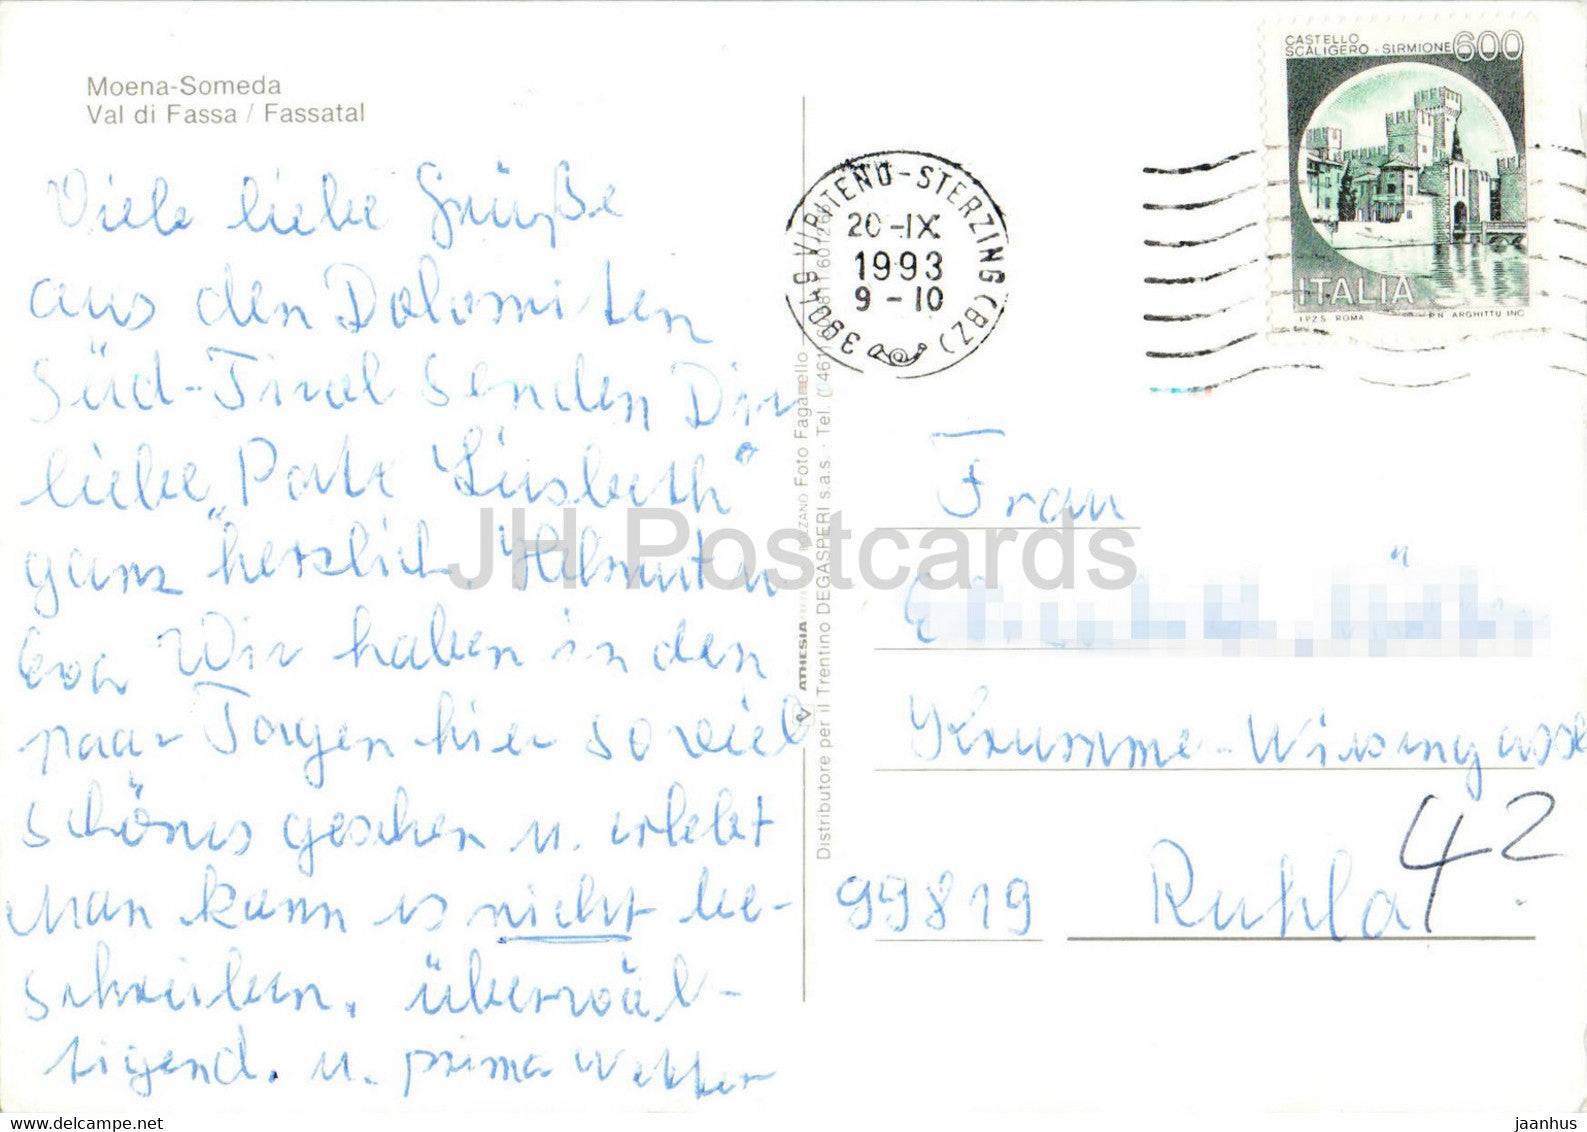 Moena-Someda
Val di Fassa / Fassatal
Viele liebe Grüße
aus den Dolomiten
Süd-Tirol senden Dir
liebe "Pate Liesbeth"
ganz herzlich. Helmut u.
Eva Wir haben in den
paar Tagen hier so viel
schönes gesehen u. erlebt
Man kann es nicht be-
schreiben. überwäl-
tigend. u. prima Wetter
ATHESIA BOLZANO Foto Faganello
Distributore per il Trentino DEGASPERI s.a.s. · Tel.
39049 VIPITENO-STERZING (BZ)
20-IX
1993
9-10
CASTELLO
SCALIGERO - SIRMIONE 600
ITALIA
I.P.Z.S. ROMA P.N. ARGHITTU INC.
Frau
Krumme-Wiesengasse
42
99819 Ruhla
JH Postcards
www.delcampe.net
jaanhus